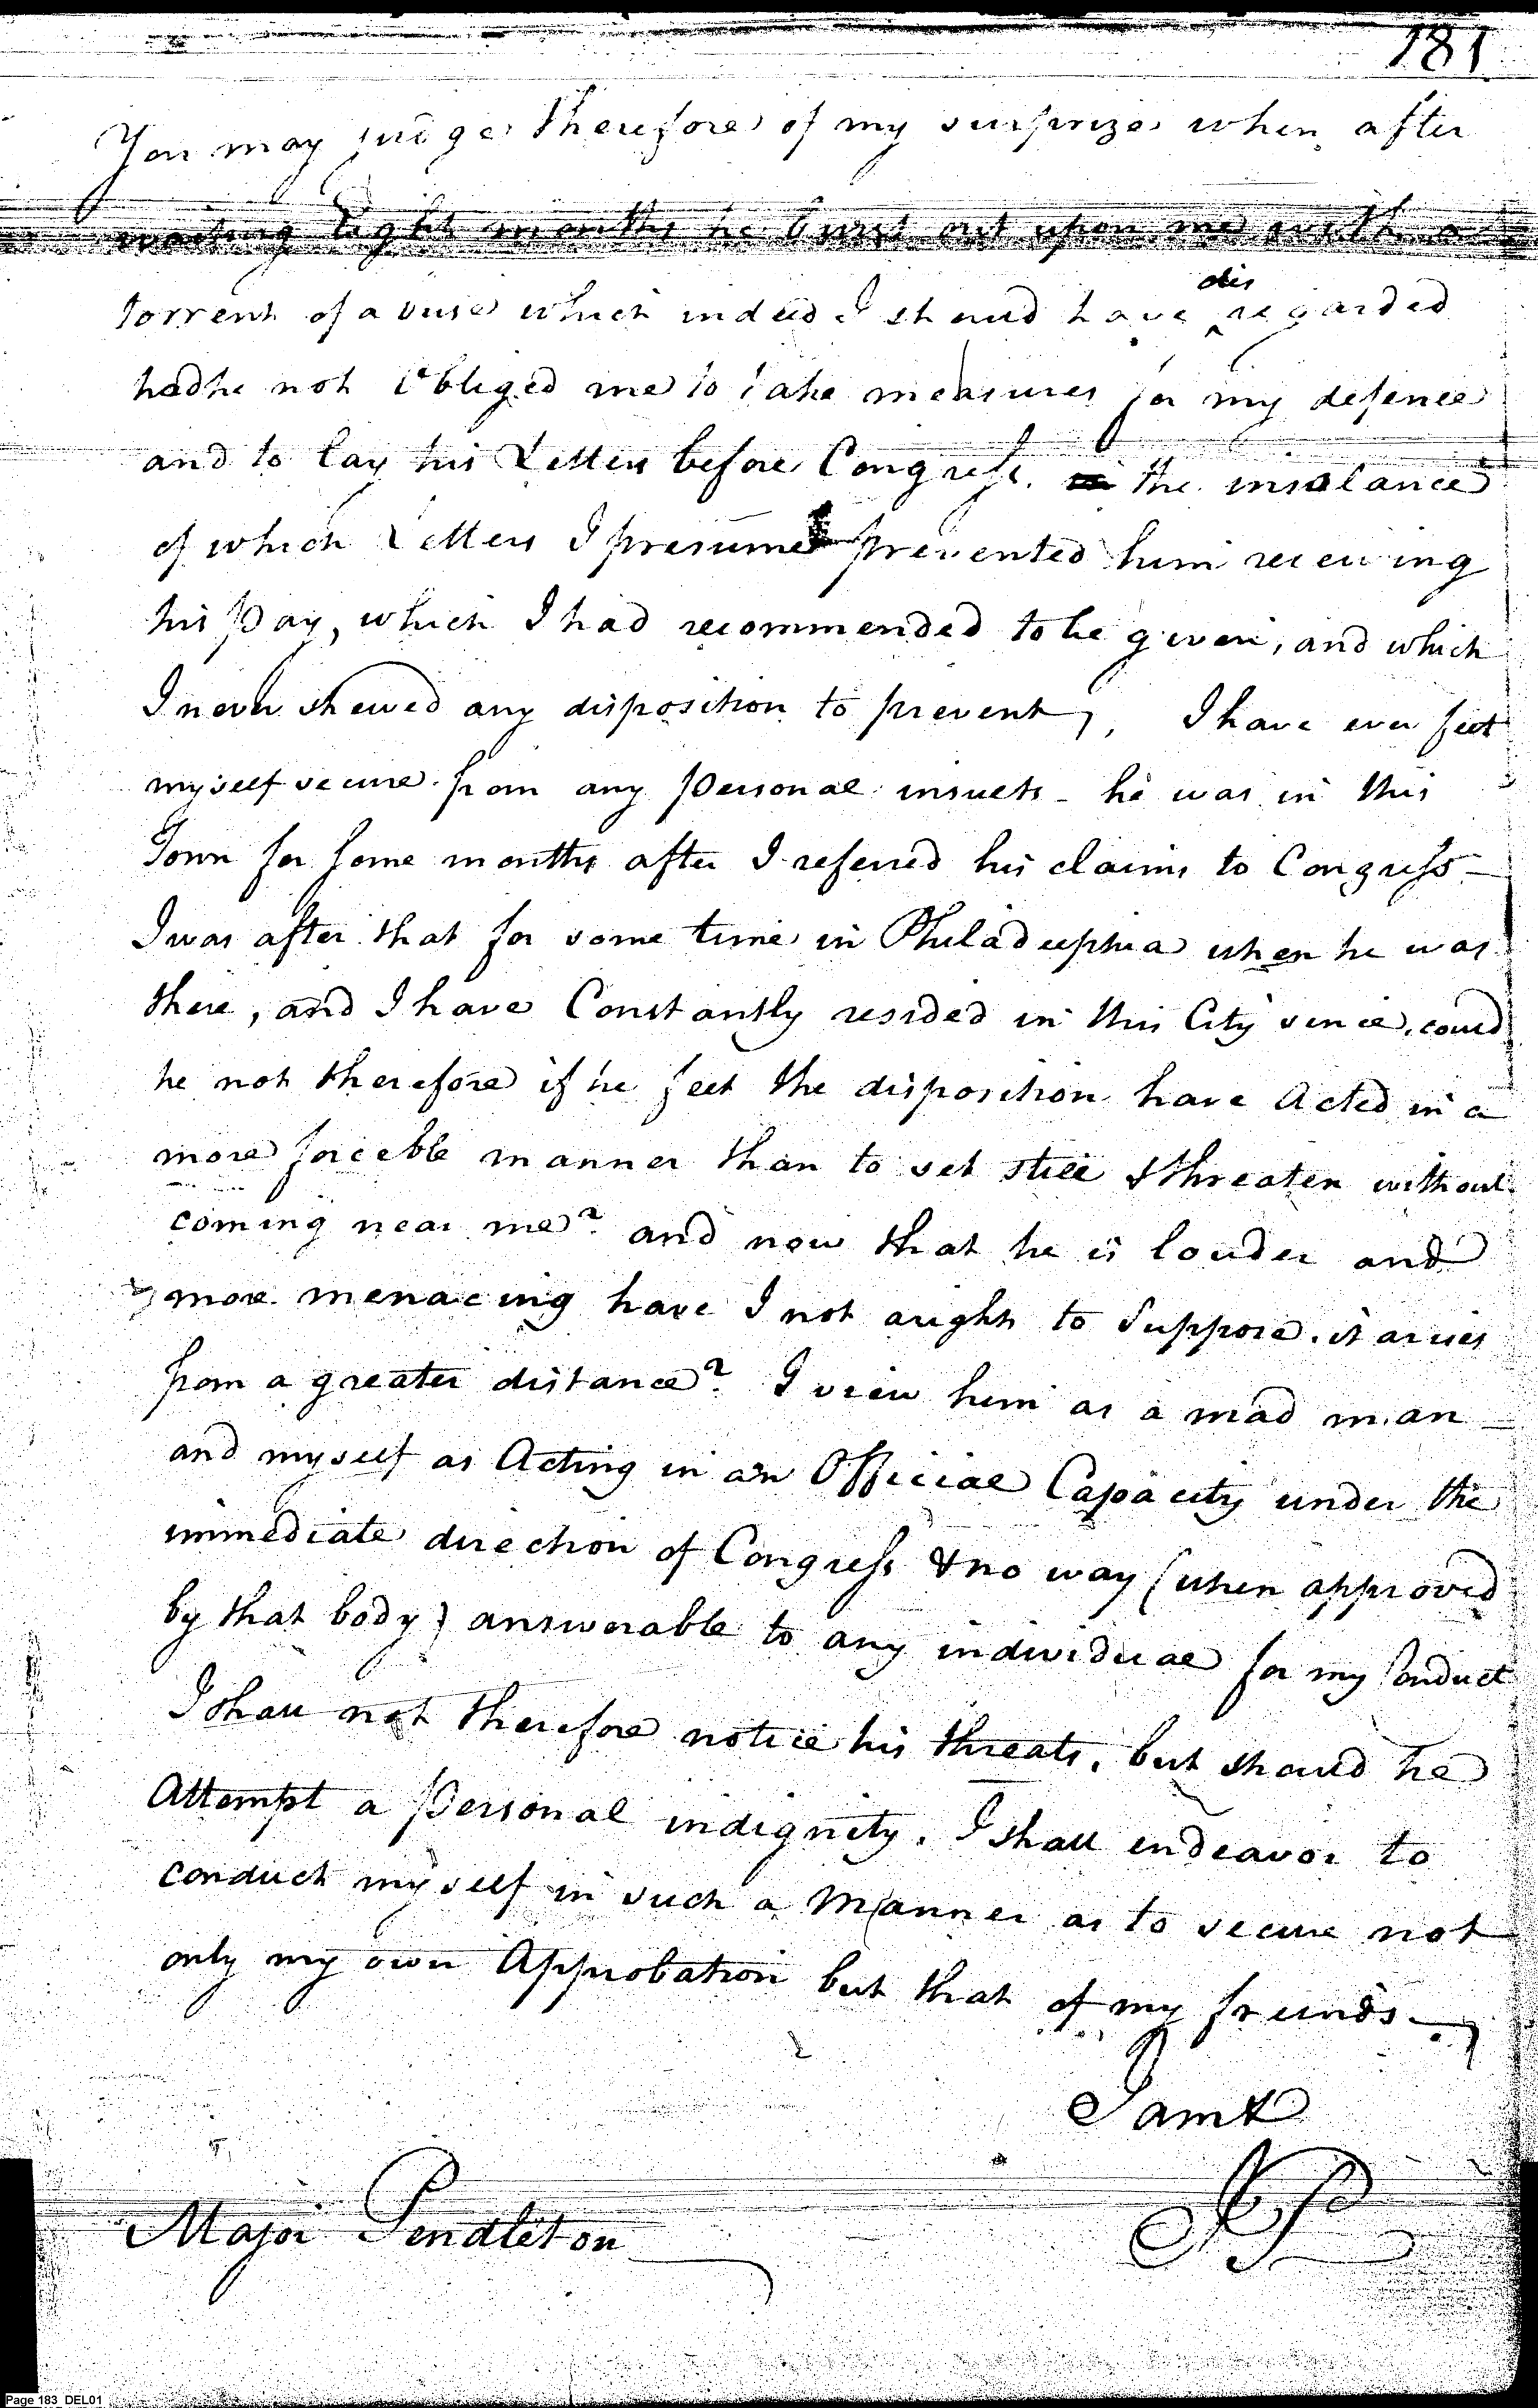 181
You may judge therefore of my surprize when after
waiting Eight months he burst out upon me with a
torrent of abuse which indeed I should have disregarded
had he not Obliged me to take measures for my defence
and to lay his Letters before Congress. the insolance
of which Letters I presume prevented him receiving
his Pay, which I had recommended to be given, and which
I never shewed any disposition to prevent, I have ever felt
myself secure from any Personal insults - he was in this
Town for some months after I referred his claims to Congress -
I was after that for some time in Philadelphia when he was
there, and I have Constantly resided in this City since. could
he not therefore if he felt the disposition have Acted in a
more forceble manner than to set still & threaten without
coming near me? and now that he is louder and
more menacing have I not aright to Suppose. it arises
from a greater distance? I view him as a mad man
and myself as Acting in an Official Capacity under the
immediate direction of Congress & no way (when approved
by that body) answerable to any individual for my Conduct
I shall not therefore notice his threats. but should he
Attempt a Personal indignity. I shall endeavor to
conduct myself in such a Manner as to secure not
only my own Approbation but that of my friends -
I am &
JP
Major Pendleton
Page 183_DEL01